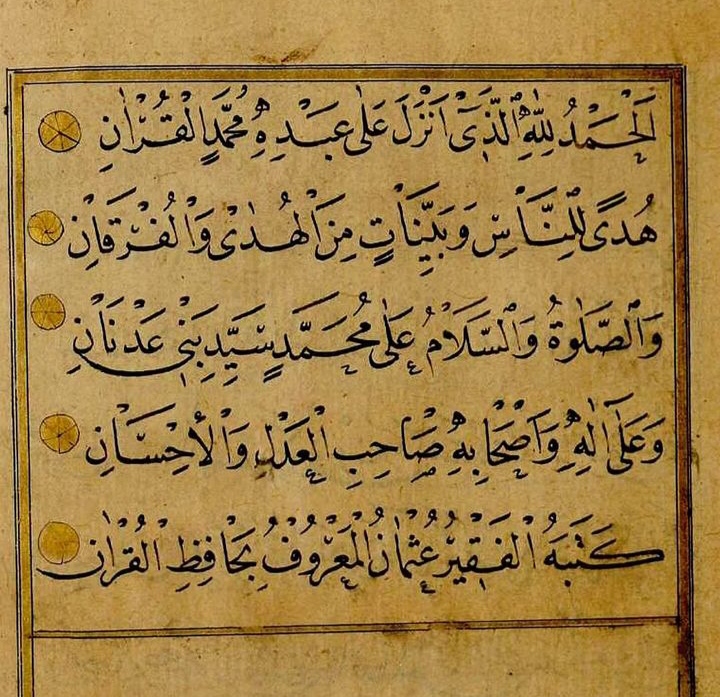 اَلْحَمْدُ لِلّٰهِ الَّذٖٓى اَنْزَلَ عَلٰى عَبْدِهٖ مُحَمَّدٍ الْقُرْاٰنِ
هُدًى لِلنَّاسِ وَبَيِّنَاتٍ مِنَ الْهُدٰى وَالْفُرْقَانِ
وَالصَّلٰوةُ وَالسَّلَامُ عَلٰى مُحَمَّدٍ سَيِّدِ بَنٖى عَدْنَانِ
وَعَلٰٓى اٰلِهٖ وَاَصْحَابِهٖ صَاحِبِ الْعَدْلِ وَالْاِحْسَانِ
كَتَبَهُ الْفَقٖيرُ عُثْمَانُ الْمَعْرُوفُ بِحَافِظِ الْقُرْاٰنِ